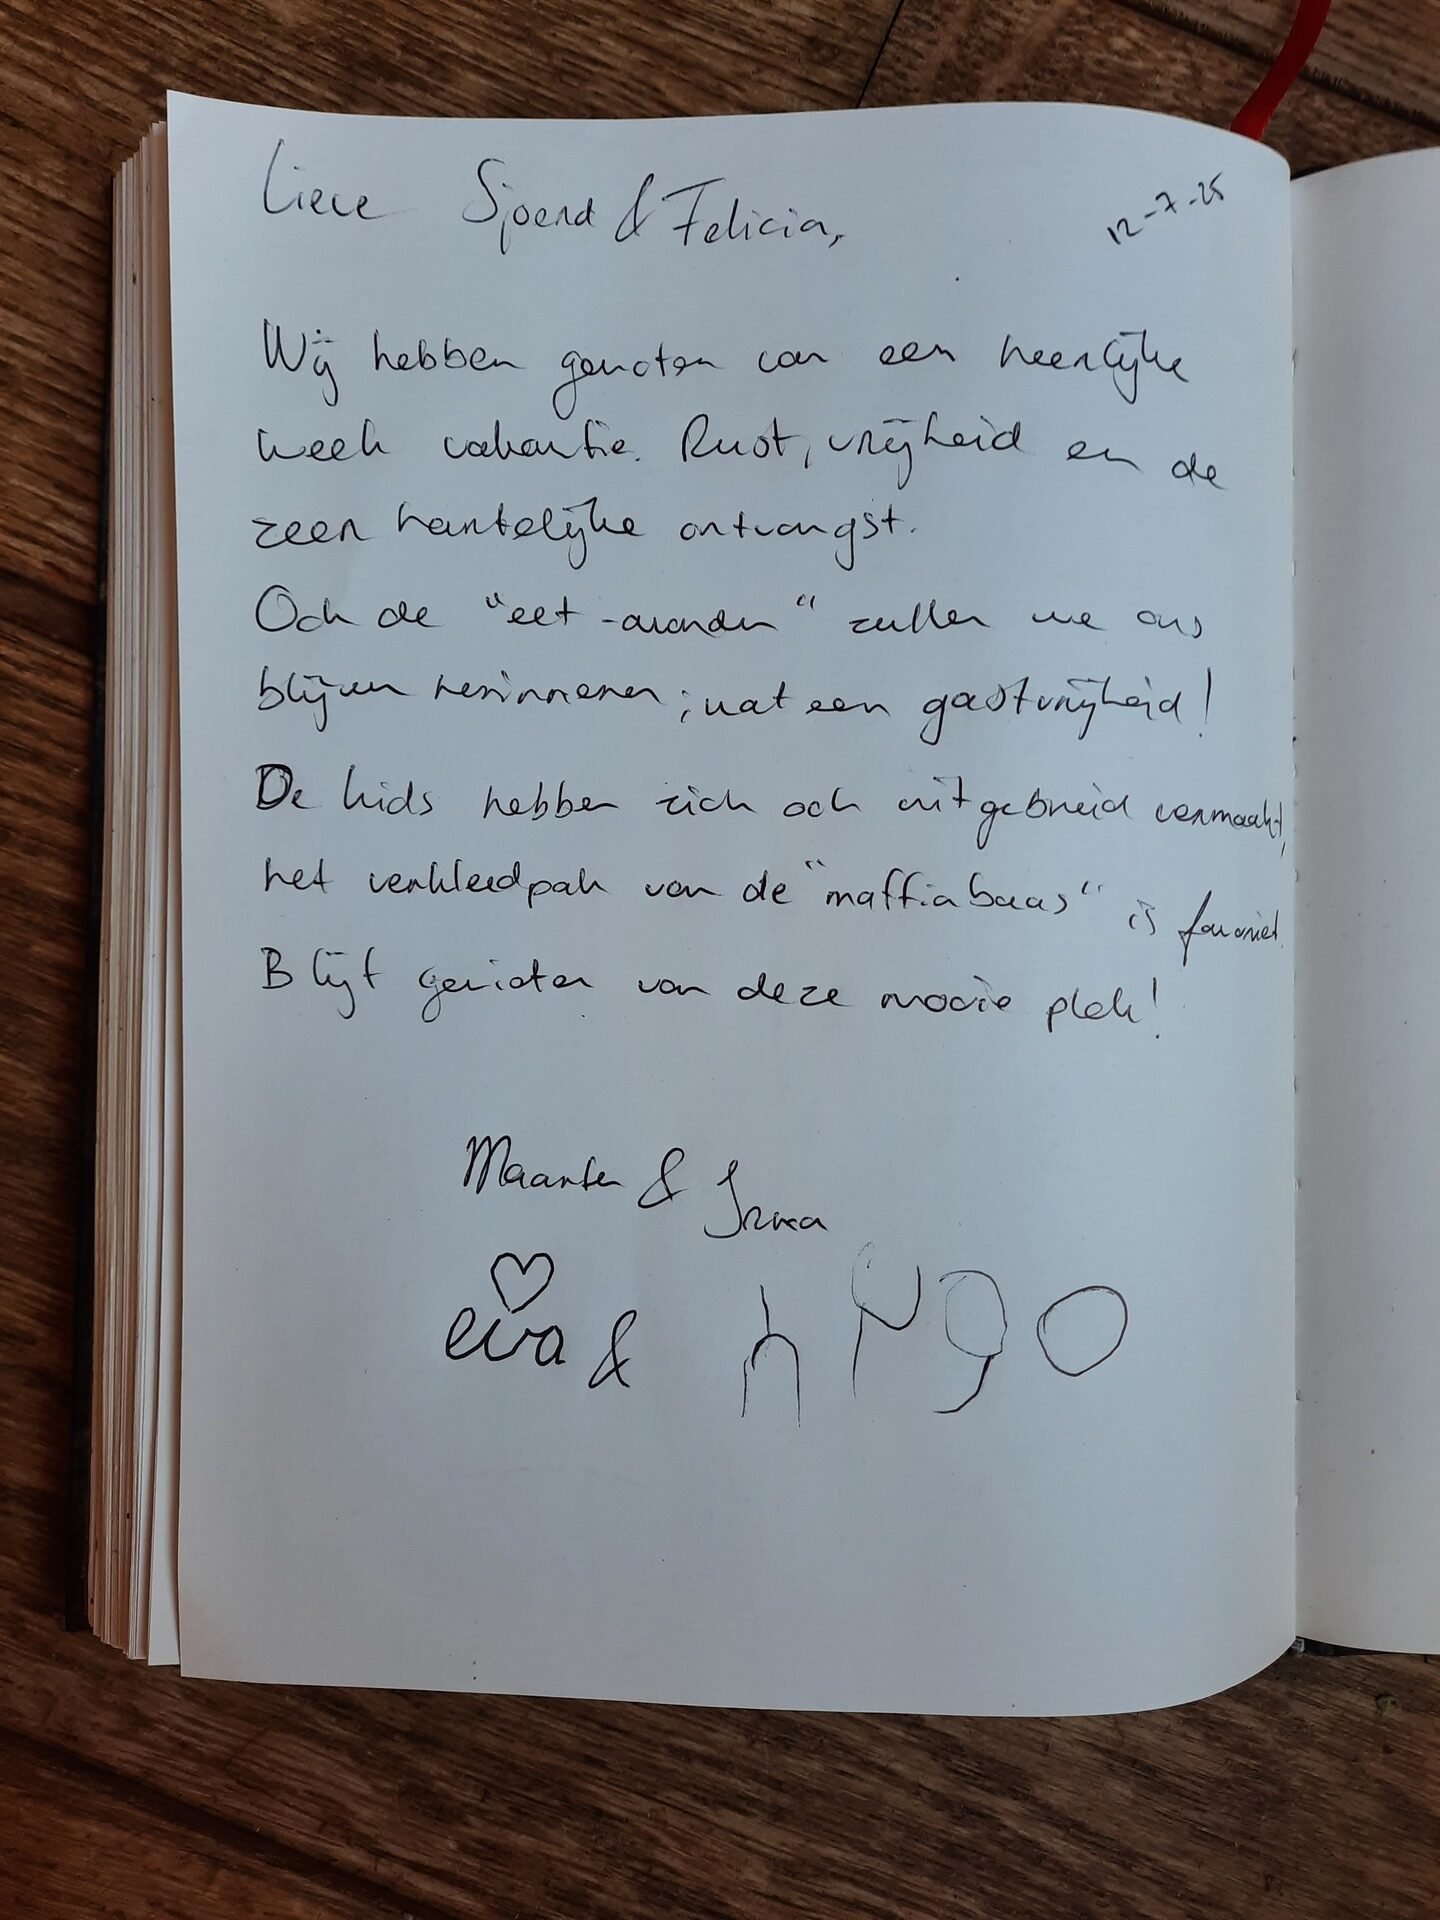 Lieve Sjoerd & Felicia,
12-7-25
Wij hebben genoten van een heerlijke
week vakantie. Rust, vrijheid en de
zeer hartelijke ontvangst.
Ook de "eet-avonden" zullen we ons
blijven herinneren; wat een gastvrijheid!
De kids hebben zich ook uitgebreid vermaakt,
het verkleedpak van de "maffiabaas" is favoriet.
Blijf genieten van deze mooie plek!
Maarten & Irma
eva & hugo